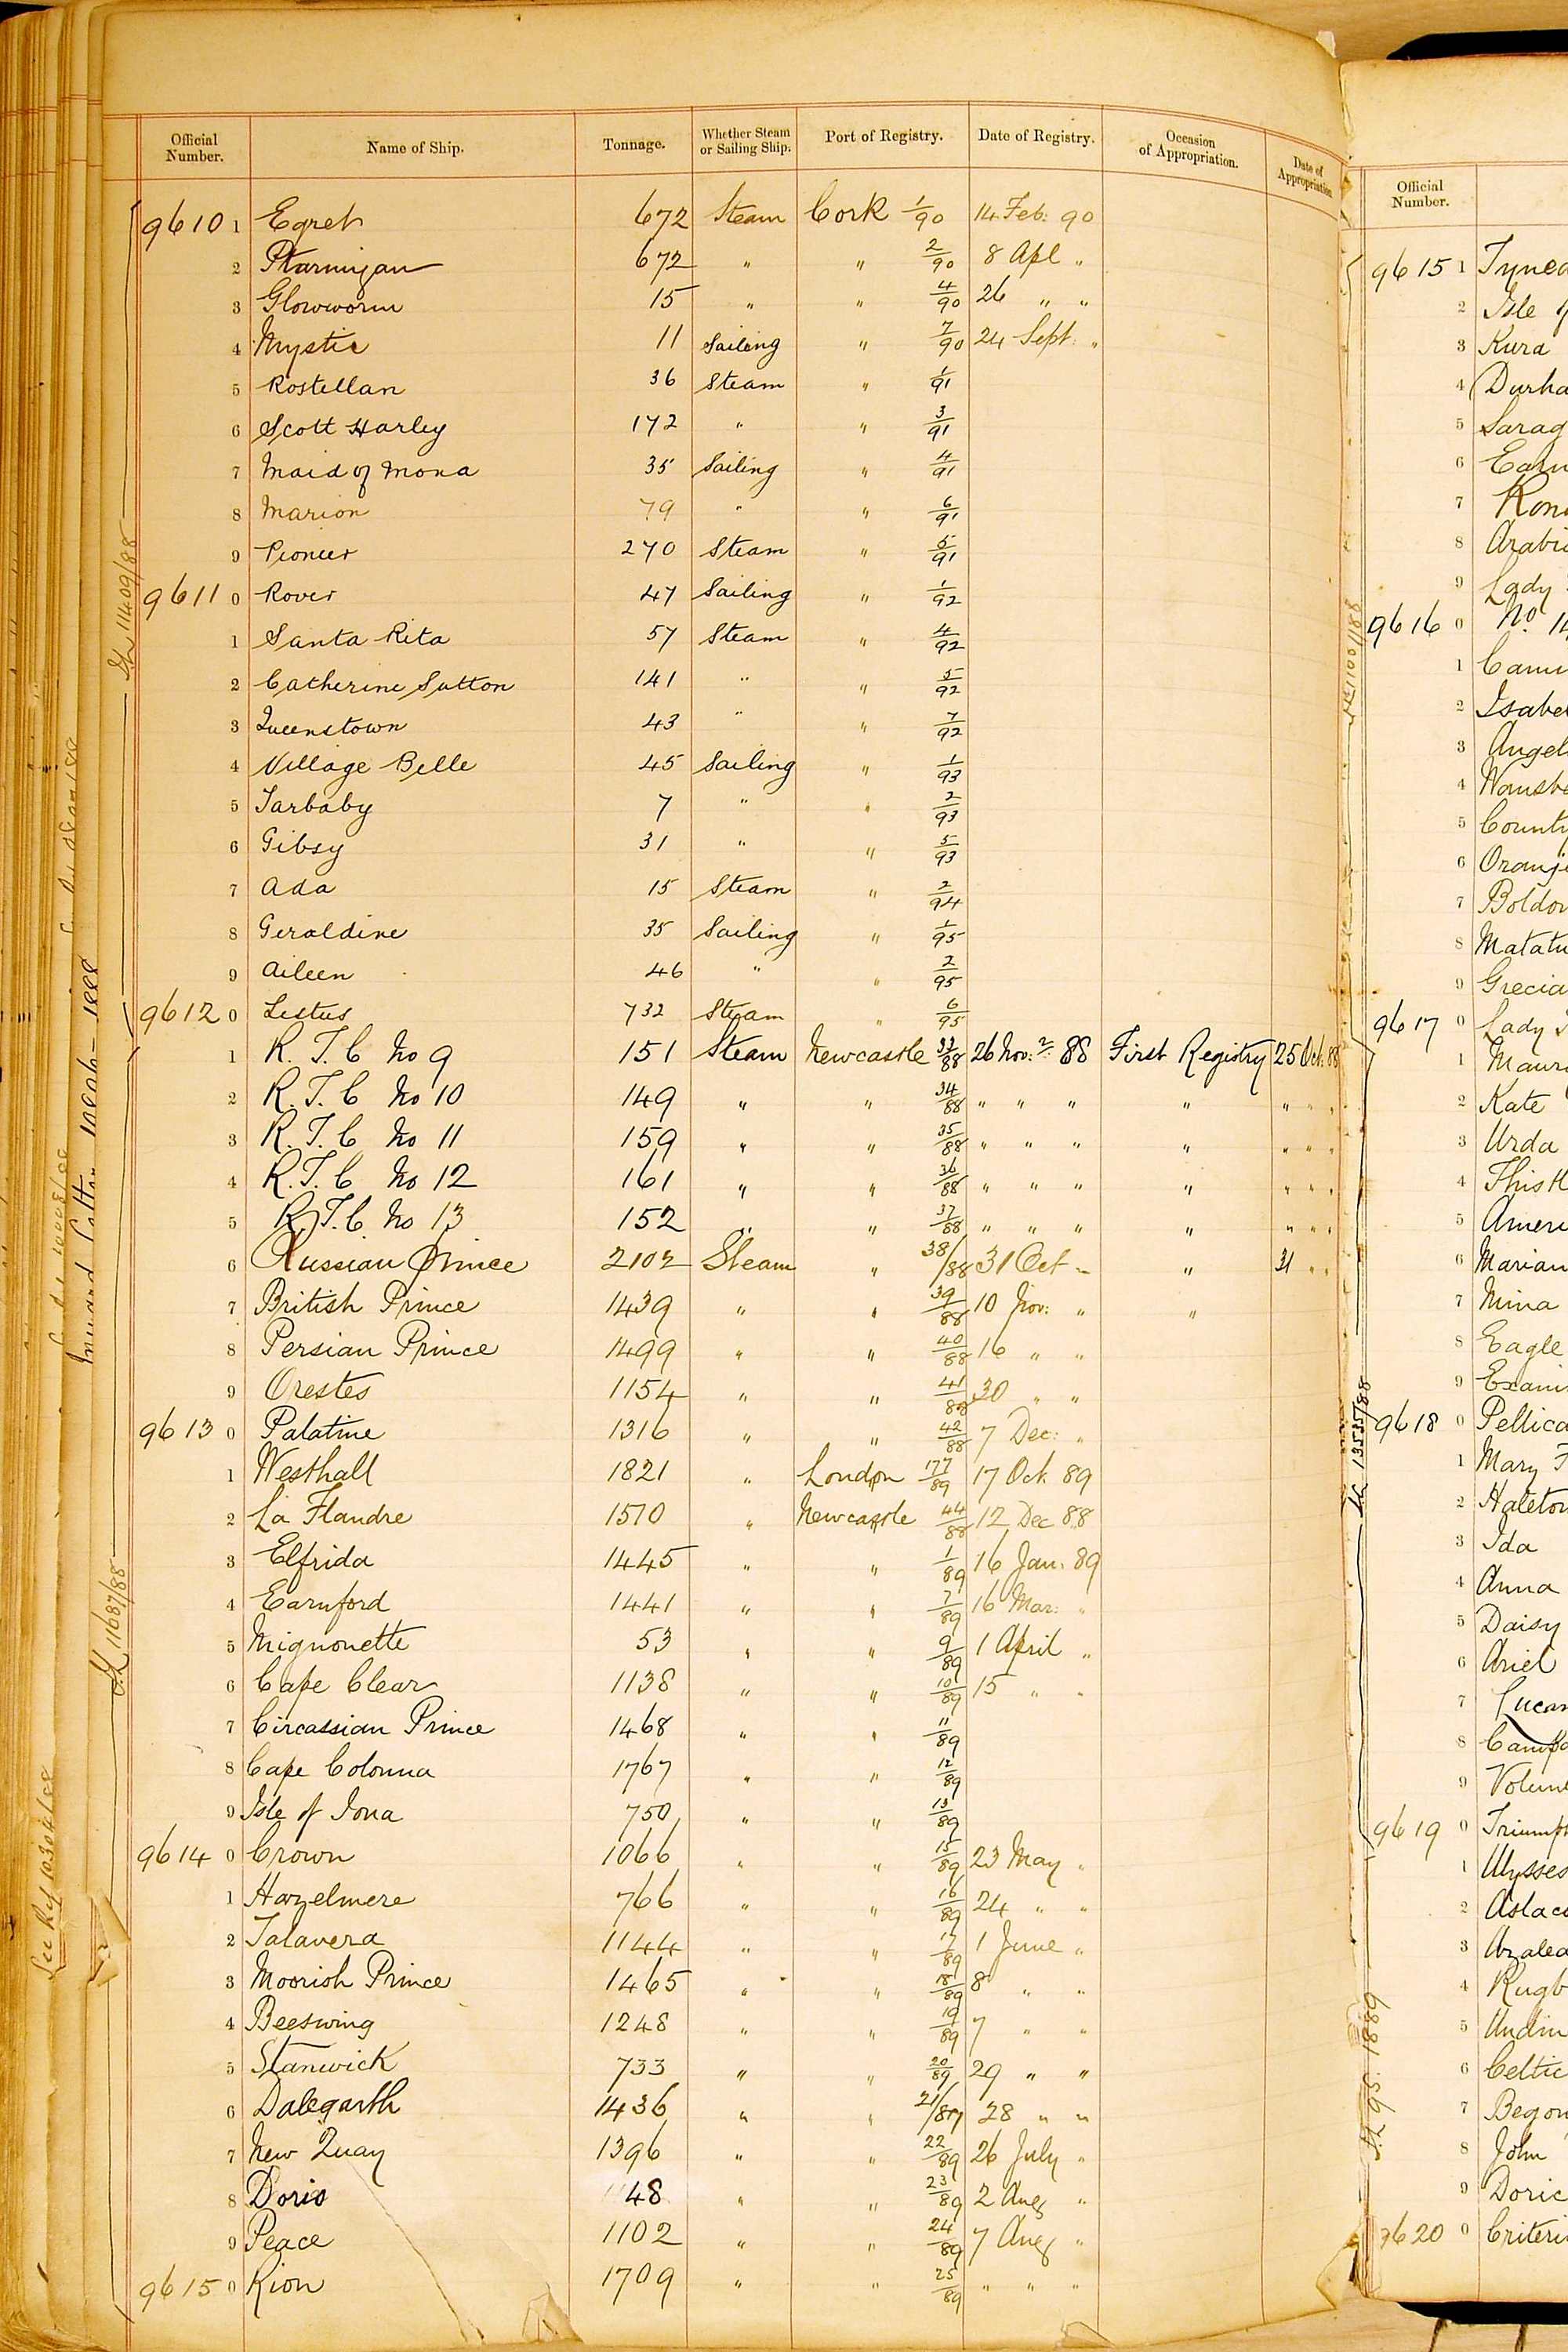 Official Number. Name of Ship. Tonnage. Whether Steam or Sailing Ship. Port of Registry. Date of Registry. Occasion of Appropriation. Date of Appropriation
9610 1 Egret 672 Steam Cork 1/90 14 Feb: 90
2 Ptarmigan 672 " " 2/90 8 Apl "
3 Glowworm 15 " " 4/90 26 " "
4 Mystic 11 Sailing " 7/90 24 Sept: "
5 Rostellan 36 Steam " 1/91
6 Scott Harley 172 " " 3/91
7 Maid of Mona 35 Sailing " 4/91
8 Marion 79 " " 6/91
9 Pioneer 270 Steam " 5/91
9611 0 Rover 47 Sailing " 1/92
1 Santa Rita 57 Steam " 4/92
2 Catherine Sutton 141 " " 5/92
3 Queenstown 43 " " 7/92
4 Village Belle 45 Sailing " 1/93
5 Tarbaby 7 " " 2/93
6 Gibsy 31 " " 5/93
7 Ada 15 Steam " 2/94
8 Geraldine 35 Sailing " 1/95
9 Aileen 46 " " 2/95
9612 0 Listus 732 Steam " 6/95
1 R. T. C No 9 151 Steam Newcastle 33/88 26 Nov: 88 First Registry 25 Oct. 88
2 R. T. C No 10 149 " " 34/88 " " " " " " "
3 R. T. C No 11 159 " " 35/88 " " " " " " "
4 R. T. C No 12 161 " " 36/88 " " " " " " "
5 R. T. C No 13 152 " " 37/88 " " " " " " "
6 Russian Prince 2102 Steam " 38/88 31 Oct " " 31 " "
7 British Prince 1439 " " 39/88 10 Nov: " "
8 Persian Prince 1499 " " 40/88 16 " "
9 Orestes 1154 " " 41/88 30 " "
9613 0 Palatine 1316 " " 42/88 7 Dec: "
1 Westhall 1821 " London 177/89 17 Oct 89
2 La Flandre 1570 " Newcastle 44/88 12 Dec 88
3 Elfrida 1445 " " 1/89 16 Jan: 89
4 Earnford 1441 " " 7/89 16 Mar: "
5 Mignonette 53 " " 9/89 1 April "
6 Cape Clear 1138 " " 10/89 15 " "
7 Circassian Prince 1468 " " 11/89
8 Cape Colonna 1767 " " 12/89
9 Isle of Iona 750 " " 13/89
9614 0 Crown 1066 " " 15/89 23 May "
1 Hazelmere 766 " " 16/89 24 " "
2 Talavera 1144 " " 17/89 1 June "
3 Moorish Prince 1465 " " 18/89 8 " "
4 Beeswing 1248 " " 19/89 7 " "
5 Stanwick 733 " " 20/89 29 " "
6 Dalegarth 1436 " " 21/89 28 " "
7 New Quay 1396 " " 22/89 26 July "
8 Doris 48 " " 23/89 2 Aug "
9 Peace 1102 " " 24/89 7 Aug "
9615 0 Rion 1709 " " 25/89 " " "
11409/88
11687/88
Official Number.
9615 1
2 Isle
3 Kura
4
5
6
7
8
9 Lady
9616 0 No. 14
1
2
3
4
5 County
6
7
8
9
9617 0 Lady
1
2 Kate
3 Urda
4
5
6
7 Mina
8 Eagle
9
9618 0
1 Mary
2
3 Ida
4 Anna
5 Daisy
6 Ariel
7
8
9
9619 0
1 Ulysses
2
3
4
5
6
7
8 John
9
9620 0
13535/88
95. 1889